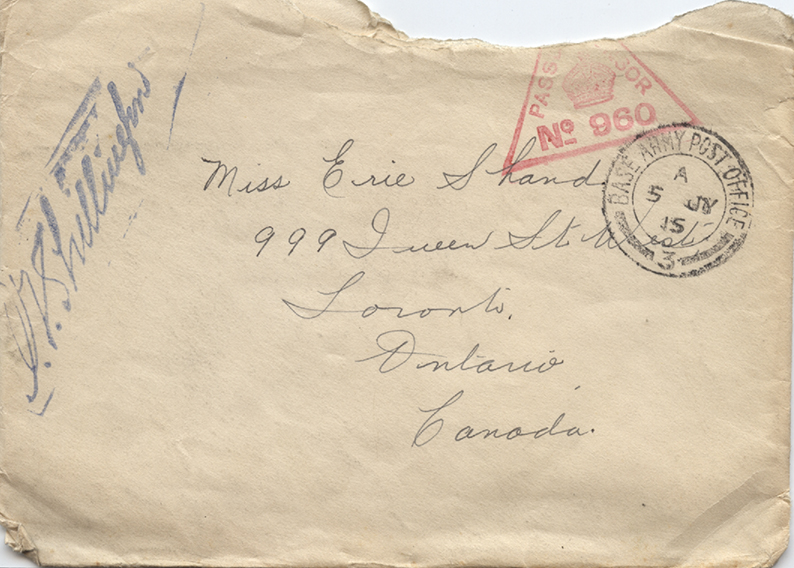 PASS SOR
No 960
Miss Erie Shand
999 Queen St West
Toronto.
Ontario
Canada.
BASE ARMY POST OFFICE
A
5 JY
15
3